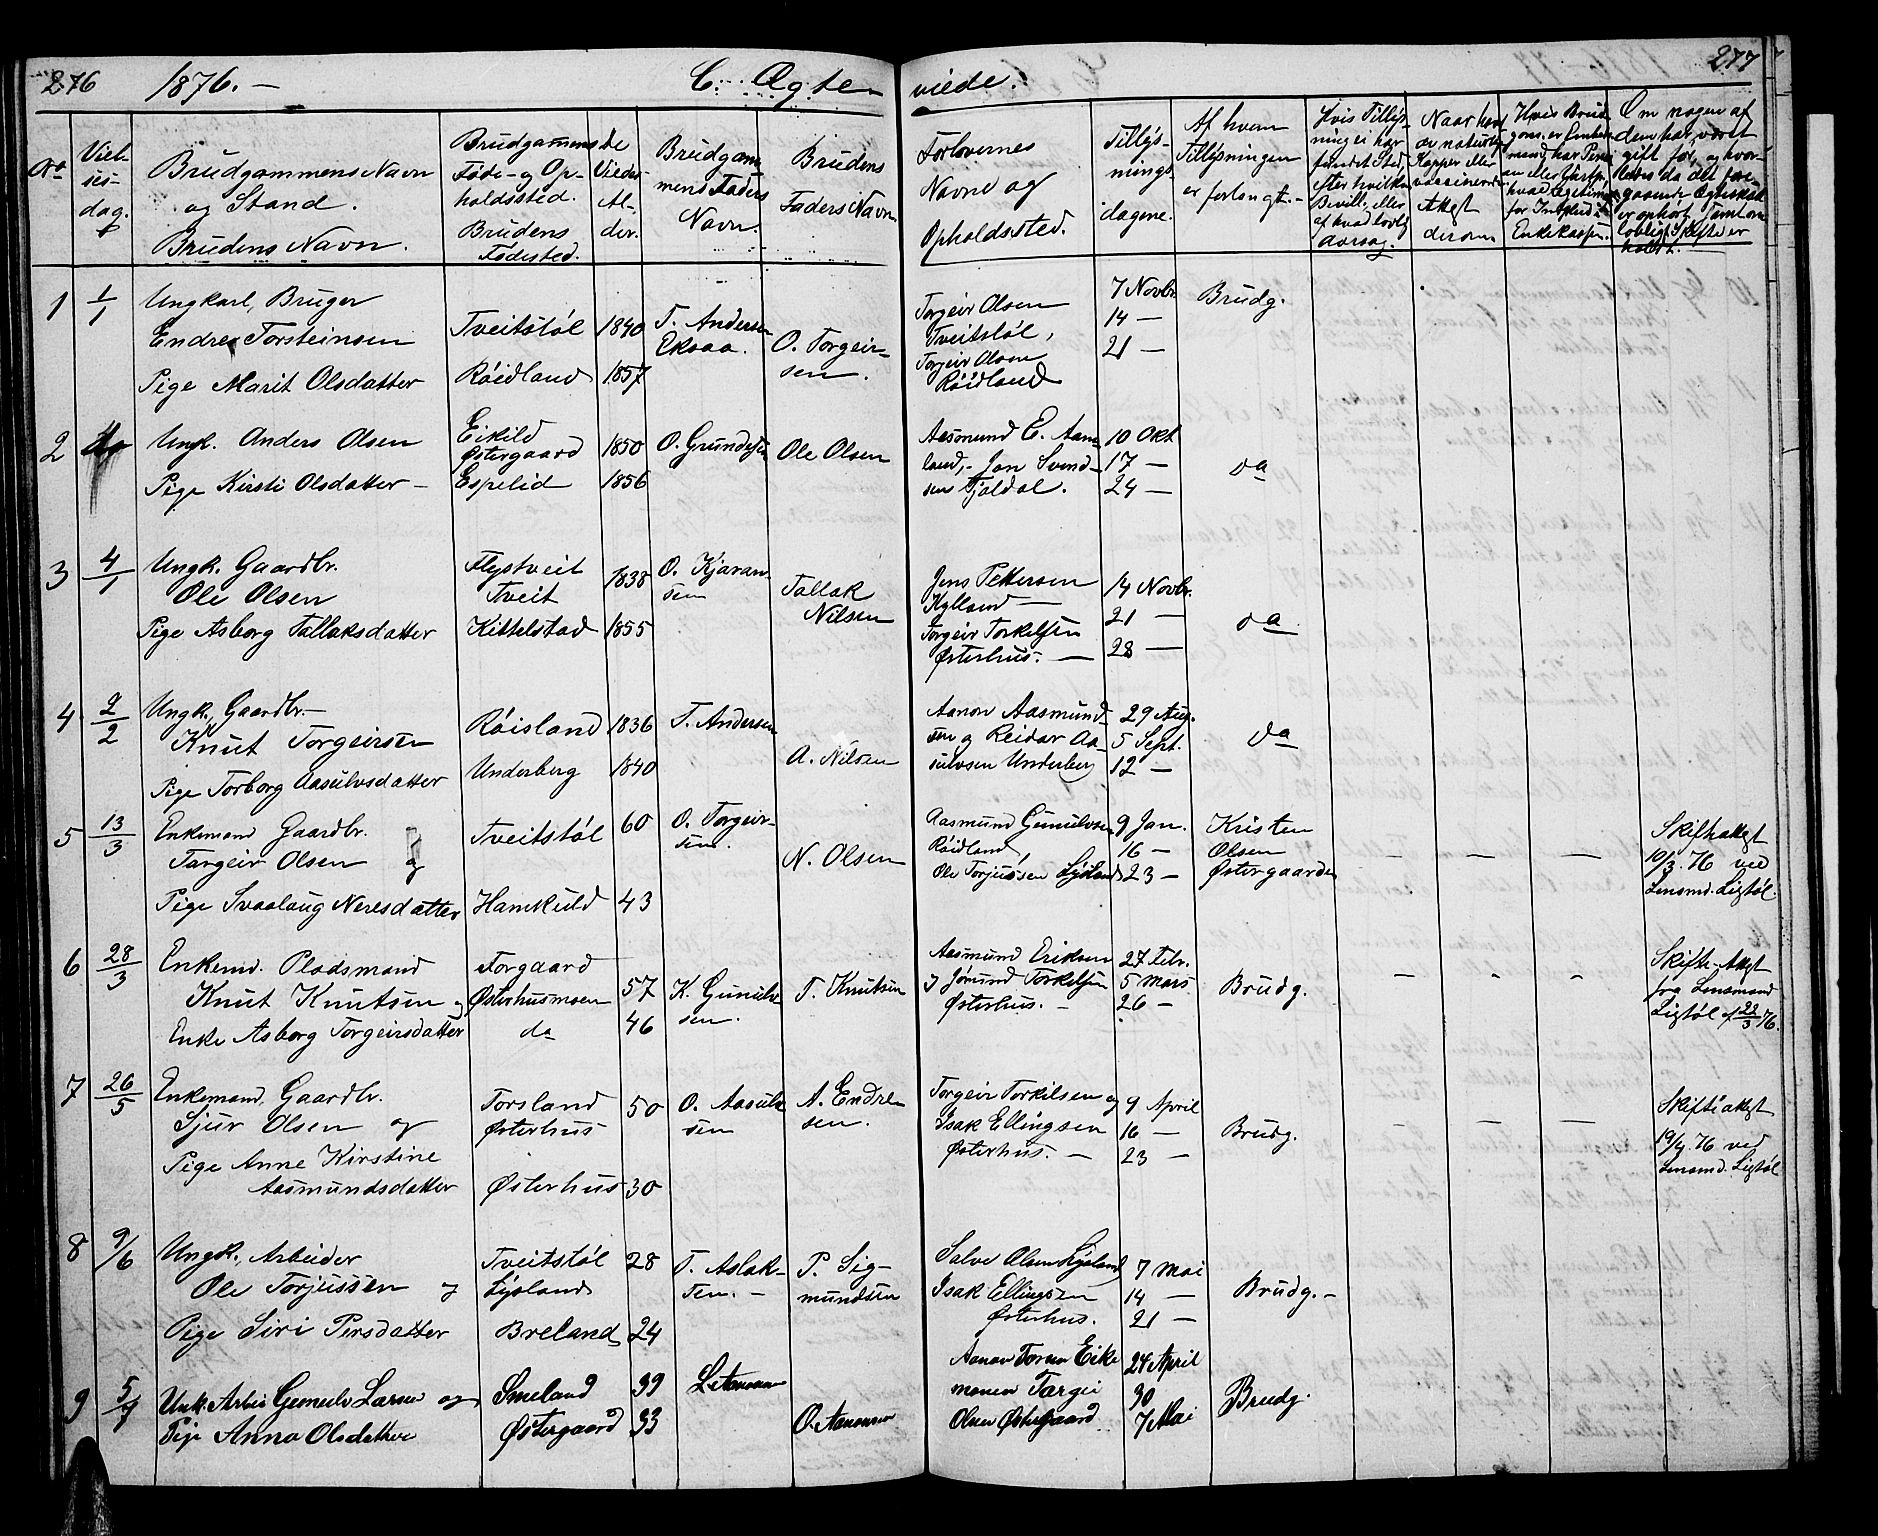 276 1876. — C. Ægte viede. 277
No
Viel-
ses-
dag.
Brudgammens Navn
og Stand.
Brudens Navn.
Brudgammens
Føde- og Op-
holdssted.
Brudens
Fødested.
de
Viedes
Al-
der.
Brudgam-
mens Faders
Navn.
Brudens
Faders Navn
Forlovernes
Navne og
Opholdssted.
Tillys-
nings-
dagene.
Af hvem
Tillysningen
er forlangt.-
Hvis Tillys-
ning ei har
fundet Sted,
efter hvilken
Bevill. eller
af hvad lovlig
Aarsag.
Naar havt
de naturlige
Kopper eller
vaccinerede
Attest
derom
Om nogen af
dem har været
gift før, og hvor-
ledes da det fore-
gaaende Ægteskab
er ophørt, samt om
lovligt Skifte er
holdt.
1 1/1 Ungkarl, Bruger
Endre Torsteinsen
Pige Marit Olsdatter
Tveitstøl 1840
Røidland 1857
T. Andersen
Eksaa.
O. Torgeir-
sen.
Torgeir Olsen
Tveitstøl,
Torgeir Olsen
Røidland
7 Novbr.
14 —
21 —
Brudg.
2 Ungk. Anders Olsen
Pige Kirsti Olsdatter —
Eikild
Østergaard 1850
Espelid 1856
O. Grundesen
Ole Olsen
Aasmund E. Aam-
land,- Jon Svend-
sens Tjaldal.
10 Okt
17 —
24 —
da
3 4/1 Ungk. Gaardbr.
Ole Olsen
Pige Asborg Tallaksdatter
Flystveit
Tveit 1838
Kittelstad 1855
O. Kjaran-
sen
Tallak
Nilsen
Jens Pettersen
Kylland —
Torgeir Torkelsen
Østerhus. —
14 Novbr.
21 —
28 —
da
4 2/2 Ungk., Gaardbr.—
Knut Torgeirsen
Pige Torborg Aasulvsdatter
Røisland 1836
Underberg 1840
T. Andersen
A. Nilsen
Aanon Aasmund-
sen og Reidar Aa-
sulvsen Underberg
29 Aug.
5 Sept.
12 —
da
5 13/3 Enkemand Gaardbr.
Targeir Olsen og
Pige Svaalaug Neresdatter
Tveitstøl 60
Hamkuld 43
O. Torgeir-
sen.
N. Olsen
Aasmund Gunulvsen
Røidland,
Ole Torjussen Lysland
9 Jan.
16 —
23 —
Kristen
Olsen
Østergaarde
— — —
Skifteattest
10/3. 76 ved
Lensmd. Ligtøl.
6 28/3 Enkemd. Pladsmand
Knut Knutsen og
Enke Asborg Torgeirsdatter
Torgaard
Østerhusmoen 57
do 46
K. Gunulv-
sen.
T. Knutsen
Aasmund Eriksen
og Jørund Torkelsen
Østerhus. —
27 Febr.
5 Mars
26 —
Brudg.
— — —
Skifte-Attest
fra Lensmand
Ligtøl af 22/3 76.
7 26/5 Enkemand, Gaardbr.
Sjur Olsen og
Pige Anne Kirstine
Aasmundsdatter
Torsland
Østerhus 50
Østerhus 30
O. Aasulv-
sen
A. Endre-
sen.
Torgeir Torkilsen og
Isak Ellingsen
Østerhus. —
9 April
16 —
23 —
Brudg.
— — —
Skifteattest
19/4. 76 ved
Lensmd. Ligtøl
8 9/6 Ungk., Arbeider
Ole Torjussen og
Pige Siri Persdatter
Tveitstøl
Lysland 28
Breland 24
T. Aslak-
sen. —
P. Sig-
mundsen
Salve Olsen Lysland
Isak Ellingsen
Østerhus.
7 Mai
14 —
21 —
Brudg. —
9 5/7 Ungk. Arbei Gunulv Larsen og
Pige Anna Olsdatter
Smeland 39
Østergaard 33
L. Aanonsen
O. Aanonsen
Aanon Torsen Eike
monen Targei
Olsen Østergaard
24 April
30
7 Mai
Brudg